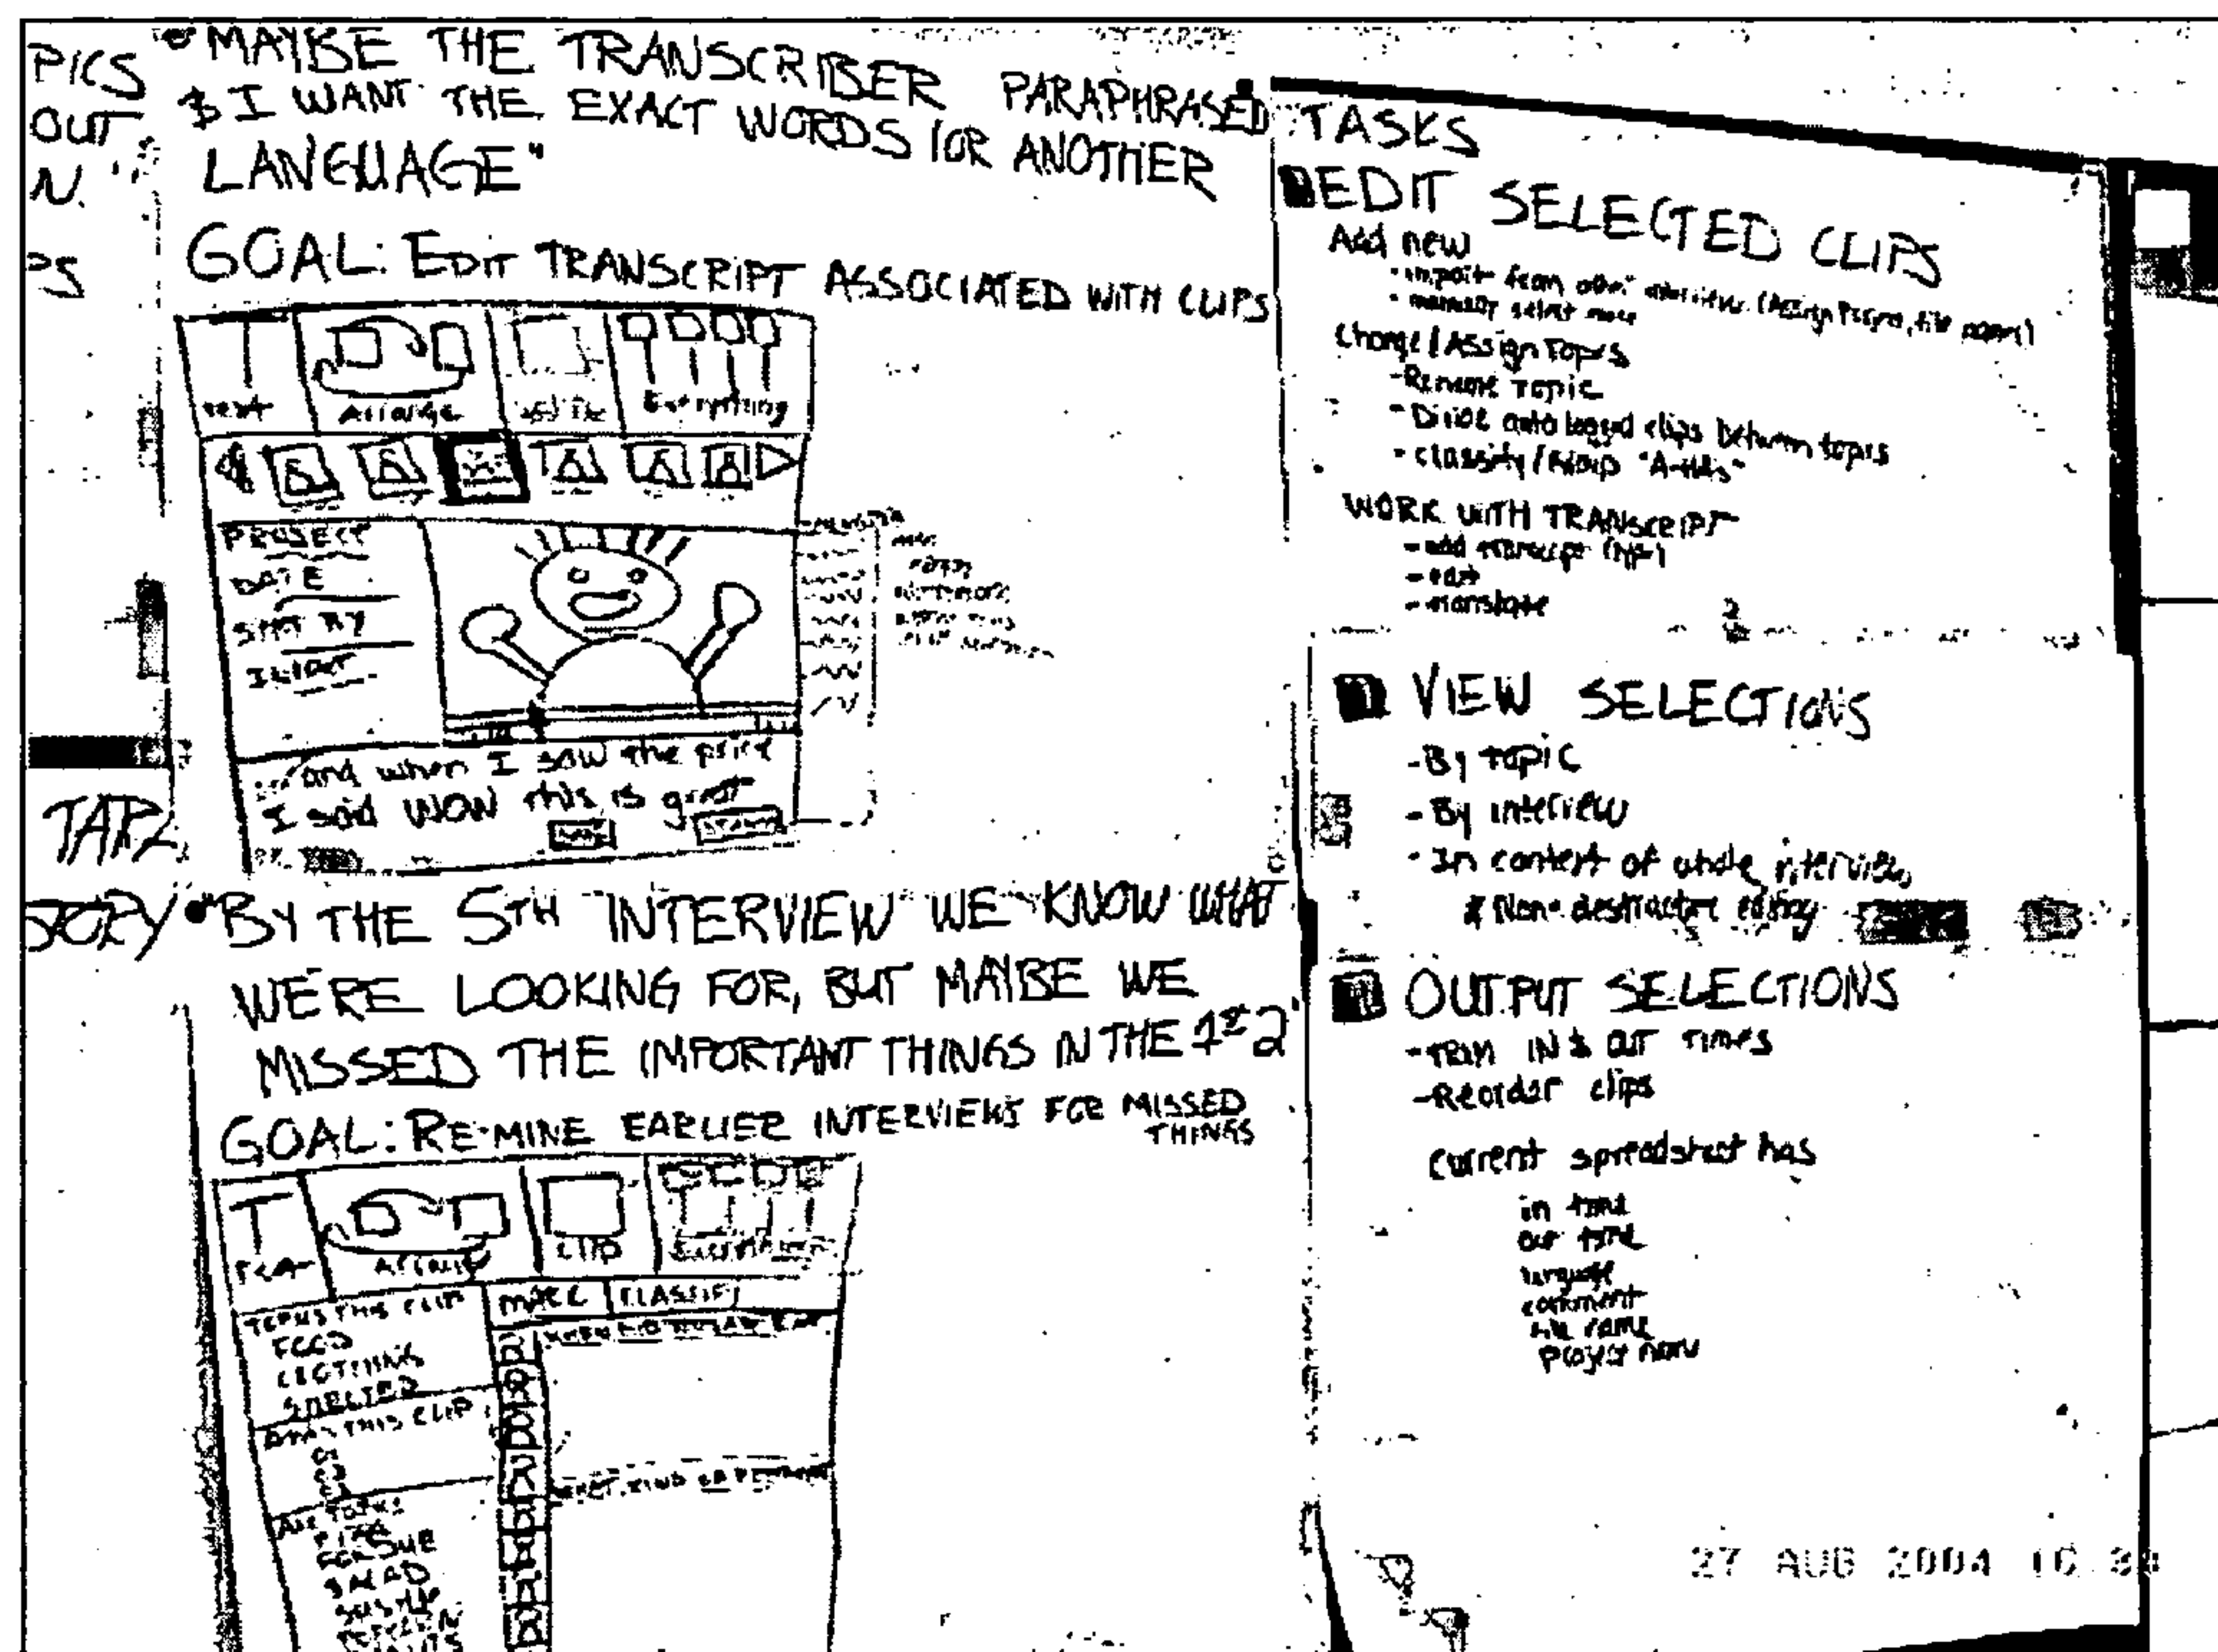 PICS
OUT
N.
PS
TAPE
• "MAYBE THE TRANSCRIBER PARAPHRASED
& I WANT THE EXACT WORDS (OR ANOTHER
LANGUAGE"
GOAL: EDIT TRANSCRIPT ASSOCIATED WITH CLIPS
text
Arrange
Everything
PROJECT
DATE
SHOT BY
... and when I saw the price
I said WOW this is great
• "BY THE 5TH INTERVIEW WE KNOW WHAT
WE'RE LOOKING FOR, BUT MAYBE WE
MISSED THE IMPORTANT THINGS IN THE 1st 2"
GOAL: RE-MINE EARLIER INTERVIEWS FOR MISSED
THINGS
Arrange
CLIP
MARK
CLASSIFY
TOPICS THIS CLIP
FOOD
CLOTHING
SHELTER
THIS CLIP
ALL TOPICS
SALAD
TASKS
EDIT SELECTED CLIPS
Add new
• import from other interviews (Assign
• manually select more
Change/Assign Topics
- Rename Topic
- Divide auto logged clips between topics
- classify/Group
WORK WITH TRANSCRIPT
- add transcript
- edit
- translate
VIEW SELECTIONS
- By topic
- By interview
- In context of whole interview
* Non-destructive editing
OUTPUT SELECTIONS
- TRIM IN & OUT TIMES
- Reorder clips
current spreadsheet has
in time
out time
language
comment
file name
Project name
27 AUG 2004